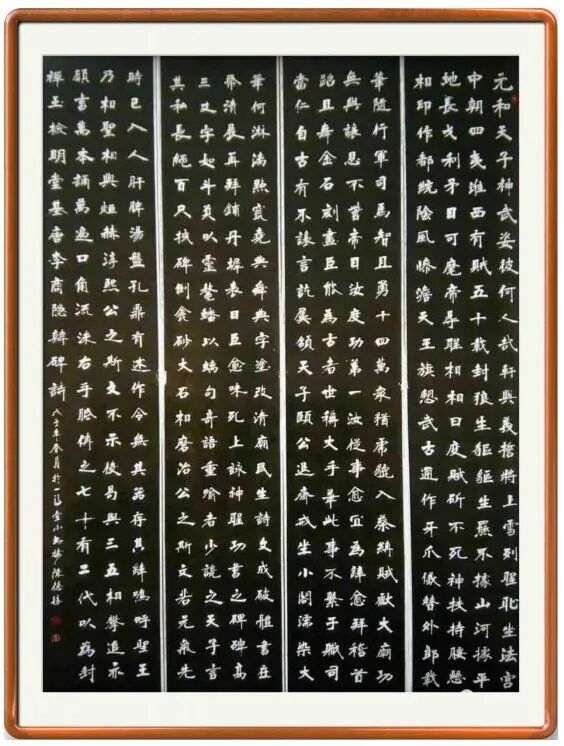 元和天子神武姿彼何人哉軒與羲誓將上雪列聖恥坐法宮
中朝四夷淮西有賊五十載封狼生貙貙生羆不據山河據平
地長戈利矛日可麾帝得聖相相曰度賊斫不死神扶持腰懸
相印作都統陰風慘澹天王旗愬武古通作牙爪儀曹外郎載
筆隨行軍司馬智且勇十四萬衆猶虎貔入蔡縛賊獻太廟功
無與讓恩不訾帝曰汝度功第一汝從事愈宜為辭愈拜稽首
蹈且舞金石刻畫臣能為古者世稱大手筆此事不繫于職司
當仁自古有不讓言訖屢頷天子頤公退齋戒坐小閣濡染大
筆何淋漓點竄堯典舜典字塗改清廟民生詩文成破體書在
紙清晨再拜鋪丹墀表曰臣愈昧死上詠神聖功書之碑碑高
三丈字如斗負以靈鰲蟠以螭句奇語重喻者少讒之天子言
其私長繩百尺拽碑倒麤砂大石相磨治公之斯文若元氣先
時已入人肝脾湯盤孔鼎有述作今無其器存其辭嗚呼聖王
乃相聖相與烜赫淳熙公之斯文不示後曷與三五相攀追亦
願書萬本誦萬遍口角流沫右手胝傳之七十有二代以為封
禪玉檢明堂基唐李商隱韓碑詩